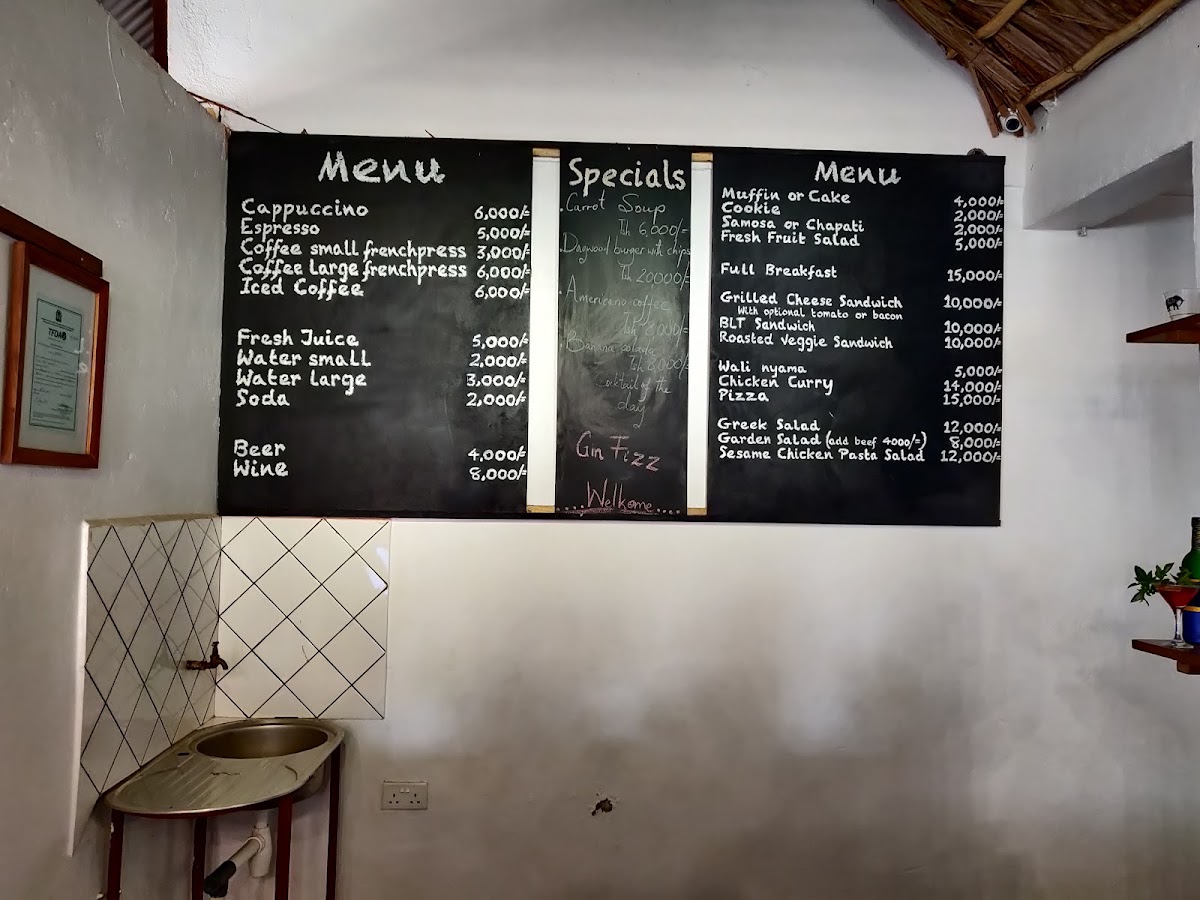 Menu
Cappuccino 6,000/=
Espresso 5,000/=
Coffee small frenchpress 3,000/=
Coffee large frenchpress 6,000/=
Iced Coffee 6,000/=
Fresh Juice 5,000/=
Water small 2,000/=
Water large 3,000/=
Soda 2,000/=
Beer 4,000/=
Wine 8,000/=
Specials
.Carrot Soup
Tsh 6,000/=
.Dagwood burger with chips
Tsh 20000/=
.Americano coffee
Tsh 8,000/=
Banana
Tsh 8,000/=
Cocktail of the
day
Gin Fizz
....Welkome....
Menu
Muffin or Cake 4,000/=
Cookie 2,000/=
Samosa or Chapati 2,000/=
Fresh Fruit Salad 5,000/=
Full Breakfast 15,000/=
Grilled Cheese Sandwich 10,000/=
With optional tomato or bacon
BLT Sandwich 10,000/=
Roasted veggie Sandwich 10,000/=
Wali nyama 5,000/=
Chicken Curry 14,000/=
Pizza 15,000/=
Greek Salad 12,000/=
Garden Salad (add beef 4000/=) 8,000/=
Sesame Chicken Pasta Salad 12,000/=
TFDA